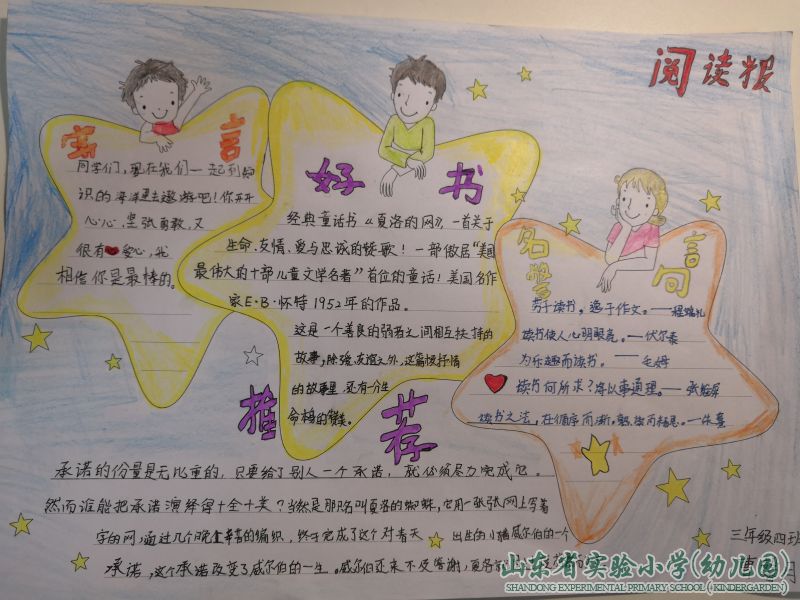 阅读报
寄言
同学们，现在我们一起到知
识的海洋里去遨游吧！你开开
心心，坚强勇敢，又
很有爱心，我
相信你是最棒的。
好书
经典童话书《夏洛的网》，一首关于
生命、友情、爱与忠诚的赞歌！一部傲居"美国
最伟大的十部儿童文学名著"首位的童话！美国名作
家E·B·怀特1952年的作品。
这是一个善良的弱者之间相互扶持的
故事，除
友谊之外，这篇
抒情
的故事里，还有一分生
命本
的赞美。
推荐
名言警句
读书使人心明眼亮。——伏尔泰
为乐趣而读书。——毛姆
读书何所求？将以事通理。——张
读书之法，在循序而渐
。——朱熹
承诺的份量是无比重的，只要给了别人一个承诺，就必须尽力完成它。
然而谁能把承诺演绎得十全十美？当然是那只名叫夏洛的蜘蛛，它用一张张网上写着
字的网，通过几个晚上辛苦的编织，终于完成了这个对春天
出生的小猪威尔伯的一个
承诺，这个承诺改变了威尔伯的一生。威尔伯还来不及答谢，夏洛
三年级四班
山东省实验小学(幼儿园)
SHANDONG EXPERIMENTAL PRIMARY SCHOOL (KINDERGARDEN)